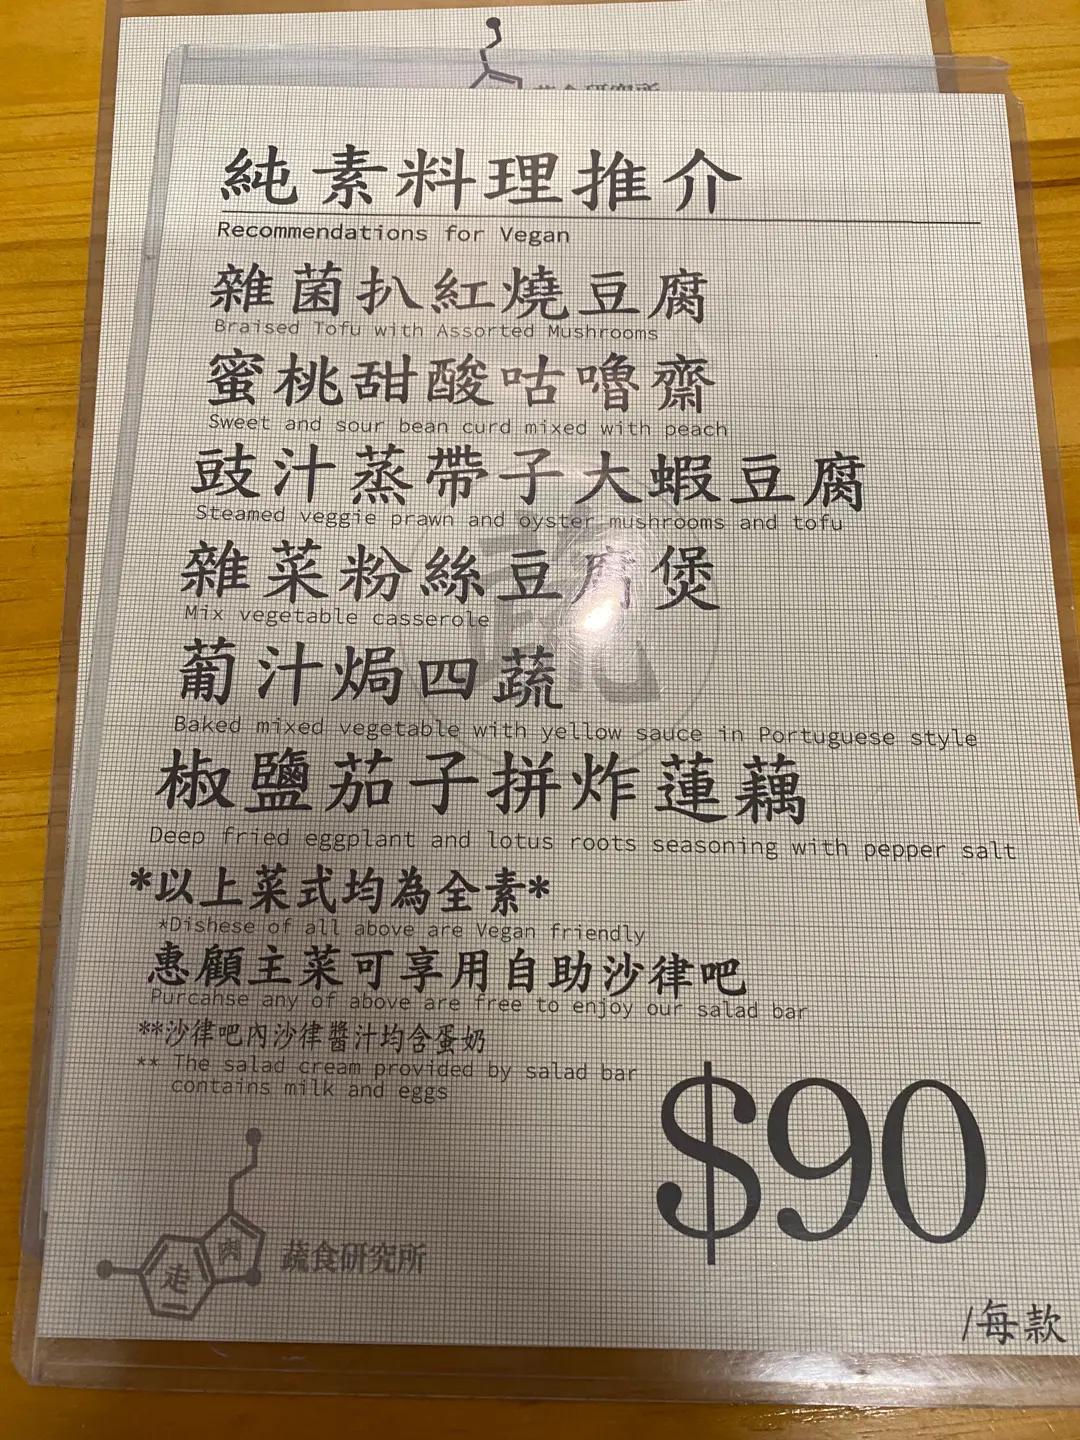 純素料理推介
Recommendations for Vegan
雜菌扒紅燒豆腐
Braised Tofu with Assorted Mushrooms
蜜桃甜酸咕嚕齋
Sweet and sour bean curd mixed with peach
豉汁蒸帶子大蝦豆腐
Steamed veggie prawn and oyster mushrooms and tofu
雜菜粉絲豆腐煲
Mix vegetable casserole
葡汁焗四蔬
Baked mixed vegetable with yellow sauce in Portuguese style
椒鹽茄子拼炸蓮藕
Deep fried eggplant and lotus roots seasoning with pepper salt
*以上菜式均為全素*
*Dishese of all above are Vegan friendly
惠顧主菜可享用自助沙律吧
Purcahse any of above are free to enjoy our salad bar
**沙律吧內沙律醬汁均含蛋奶
** The salad cream provided by salad bar
contains milk and eggs
$90
/每款
走肉
蔬食研究所